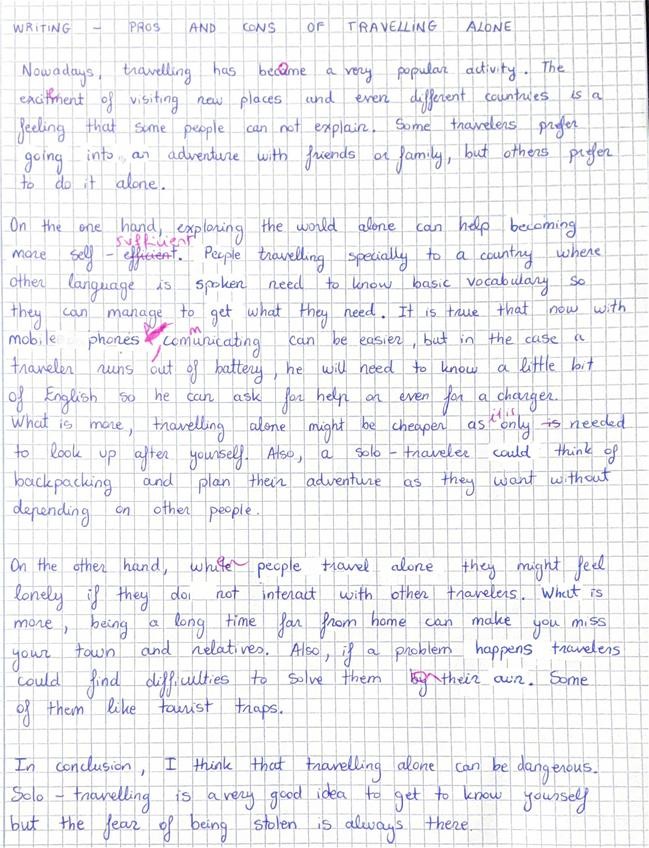 WRITING - PROS AND CONS OF TRAVELLING ALONE
Nowadays, travelling has become a very popular activity. The
excitment of visiting new places and even different countries is a
feeling that some people can not explain. Some travelers prefer
going into an adventure with friends or family, but others prefer
to do it alone.
On the one hand, exploring the world alone can help becoming
sufficient
more self - efficient. People travelling specially to a country where
other language is spoken need to know basic vocabulary so
they can manage to get what they need. It is true that now with
mobile phones comunicating can be easier, but in the case a
traveler runs out of battery, he will need to know a little bit
of English so he can ask for help or even for a charger.
What is more, travelling alone might be cheaper as it is only is needed
to look up after yourself. Also, a solo - traveler could think of
backpacking and plan their adventure as they want without
depending on other people.
On the other hand, while people travel alone they might feel
lonely if they do not interact with other travelers. What is
more, being a long time far from home can make you miss
your town and relatives. Also, if a problem happens travelers
could find difficulties to solve them by their own. Some
of them like tourist traps.
In conclusion, I think that travelling alone can be dangerous.
Solo - travelling is a very good idea to get to know yourself
but the fear of being stolen is always there.